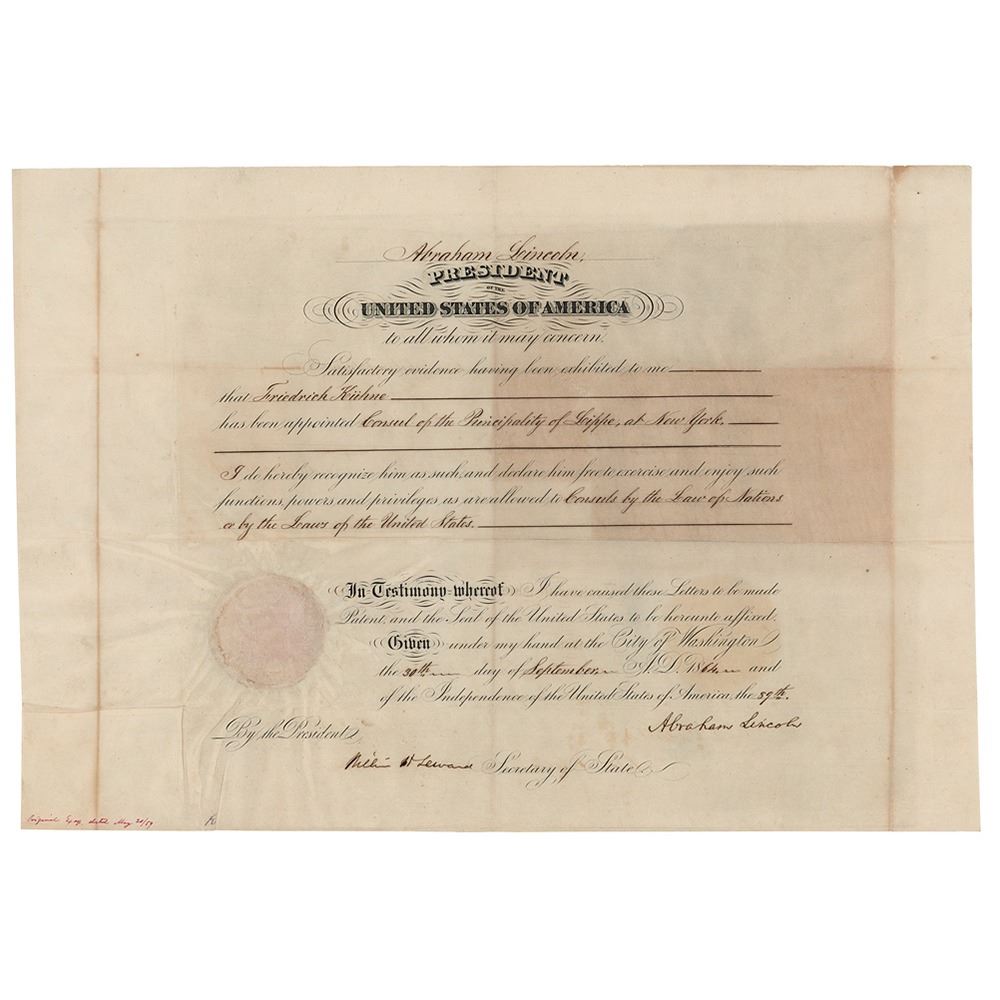 Abraham Lincoln,
PRESIDENT
OF THE
UNITED STATES OF AMERICA
to all whom it may concern.
Satisfactory evidence having been exhibited to me
that Friedrich Kühne
has been appointed Consul of the Principality of Lippe, at New York,
I do hereby recognize him as such, and declare him free to exercise and enjoy such
functions, powers and privileges as are allowed to Consuls by the Law of Nations
or by the Laws of the United States.
In Testimony whereof I have caused these Letters to be made
Patent, and the Seal of the United States to be hereunto affixed.
Given under my hand at the City of Washington
the 30th day of September, A.D. 1864 and
of the Independence of the United States of America, the 89th.
Abraham Lincoln
By the President
William H Seward Secretary of State
Original Exeq dated May 20/59